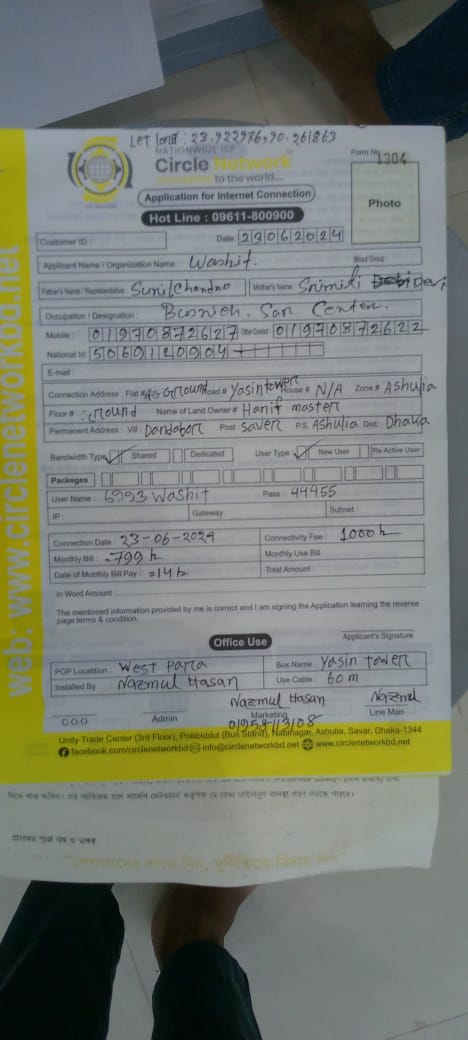 Let long: 23.922976,90.261863
NATIONWIDE ISP
Circle Network
to the world...
Form No
1304
Application for Internet Connection
Hot Line : 09611-800900
Photo
Customer ID :
Date: 23062024
Applicant Name / Organization Name : Washit.
Blood Group :
Father's Name / Representative Sunilchandro Mother's Name Srimiti Devi
Occupation / Designation :
Mobile : 01970872627 Other Contact 01970872622
National Id: 5069120904
E-mail
Connection Address : Flat # Ground Road # Yasin tower House # N/A Zone # Ashulia
Floor # Ground Name of Land Owner # Hanif master
Permanent Address : Vill: Dandabor Post: Saver P.S. Ashulia Dist: Dhaka
Bandwidth Type Shared Dedicated User Type New User Re-Active User
Packages
User Name : 6993 Washit Pass : 44455
IP : Gateway : Subnet :
Connection Date : 23-06-2024 Connectivity Fee : 1000
Monthly Bill : 799 Monthly Use Bill :
Date of Monthly Bill Pay : 14 Total Amount :
In Word Amount
The mentioned information provided by me is correct and I am signing the Application learning the reverse
page terms & condition.
Applicant's Signature
Office Use
POP Location : West Para Box Name : Yasin tower
Installed By : Nazmul Hasan Use Cable : 60 m
Nazmul Hasan Nazmul
C.O.O Admin Marketing Line Man
01958113108
Unity Trade Center (3rd Floor), Pollibiddut (Bus Stand), Nabinagar, Ashulia, Savar, Dhaka-1344
facebook.com/circlenetworkbd info@circlenetworkbd.net www.circlenetworkbd.net
web: www.circlenetworkbd.net